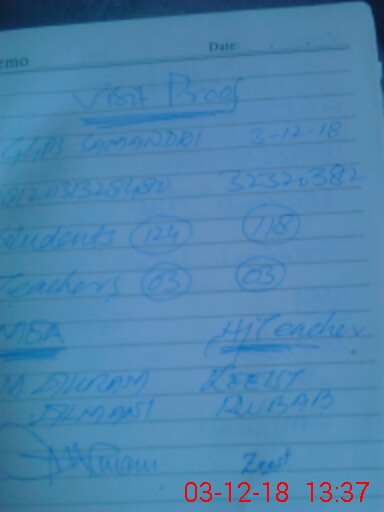 emo Date:
Visit Proof
GGPS SAMANDRI 3-12-18
32320382
Students 124 118
Teachers 03 03
MEA H/Teacher
M IKRAM ZEEST
RUBAB
Zeest
03-12-18 13:37